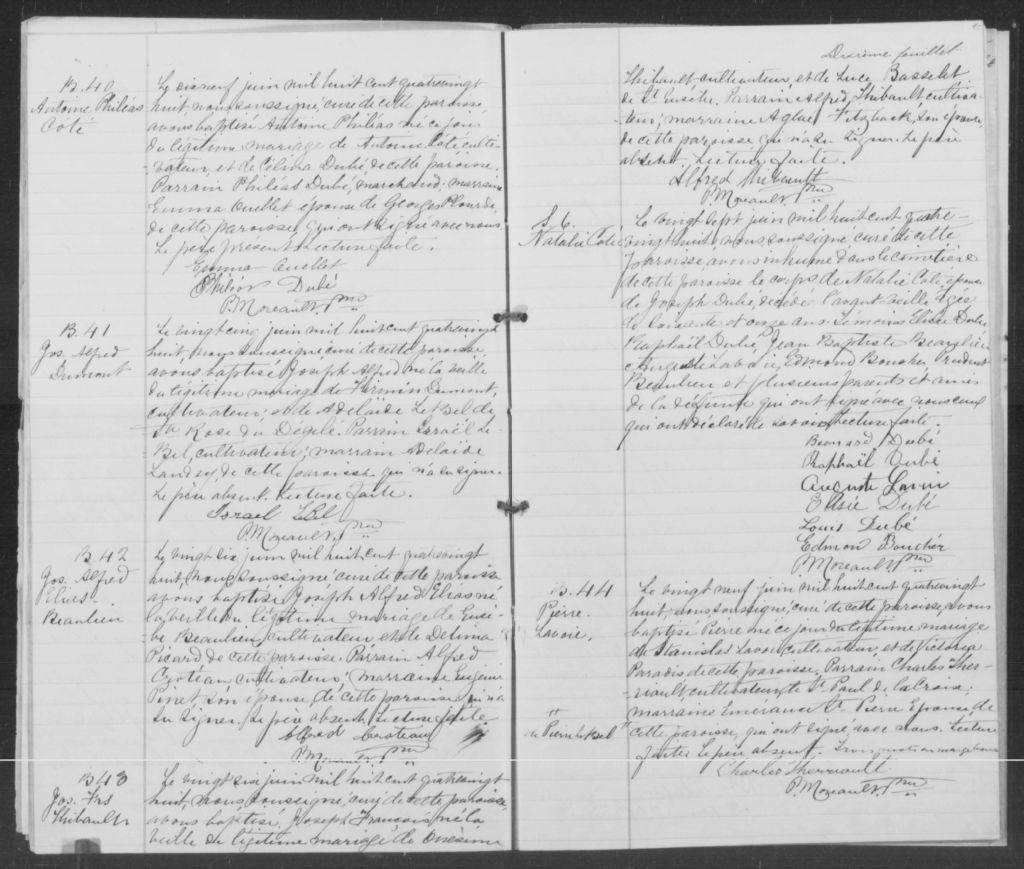 B. 40
Antoine Philias
Côté
Le dix neuf juin mil huit cent quatrevingt
huit, nous soussigné, curé de cette paroisse,
avons baptisé Antoine Philias né ce jour
du légitime mariage de Antoine Côté culti-
vateur, et de Célina Dubé de cette paroisse.
Parrain Philéas Dubé, marchand; marraine
Emma Ouellet épouse de Georges Plourde,
de cette paroisse qui ont signé avec nous.
Le père présent. Lecture faite.
Emma Ouellet
Philéas Dubé
P. Moreault Ptre
B. 41
Jos. Alfred
Dumont
Le vingt cinq juin mil huit cent quatrevingt
huit, nous soussigné curé de cette paroisse
avons baptisé Joseph Alfred né la veille
du légitime mariage de Firmin Dumont,
cultivateur, et de Adelaïde LeBel de
Ste Rose du Dégelé. Parrain Israël Le-
Bel, cultivateur; marraine Adelaïde
de cette paroisse qui n'a su signer.
Le père absent. Lecture faite.
Israel LeBel
P. Moreault Ptre
B. 42
Jos. Alfred
Elias
Beaulieu
Le vingt six juin mil huit cent quatrevingt
huit, nous soussigné, curé de cette paroisse
avons baptisé Joseph Alfred Elias né
la veille du légitime mariage de Eusè-
be Beaulieu, cultivateur et de Delima
Picard de cette paroisse. Parrain Alfred
cultivateur; marraine
Pinet, son épouse, de cette paroisse qui n'a
su signer. Le père absent. Lecture faite
Alfred
P. Moreault Ptre
B. 43
Jos. Frs
Thibault
Le vingt six juin mil huit cent quatrevingt
huit, nous soussigné, curé de cette paroisse,
avons baptisé, Joseph François né la
veille du légitime mariage de Onésime
Dixième feuillet
Thibault cultivateur, et de Luce Basselet
de St Eusèbe. Parrain Alfred Thibault cultiva-
teur, marraine Aglaé Fitzback, son épouse,
de cette paroisse qui n'a su signer. Le père
absent. Lecture faite.
Alfred Thibault
P. Moreault Ptre
S. 6.
Natalie Coté
Le vingt sept juin mil huit cent quatre-
vingt huit, nous soussigné curé de cette
paroisse, avons inhumé dans le cimetière
de cette paroisse le corps de Natalie Coté, épouse
de Joseph Dubé, décédée l'avant veille, agée
de soixante et onze ans. Témoins Elisée Dubé,
Raphaël Dubé, Jean Baptiste Beaulieu
Auguste Lavoie, Edmond Boucher, Prudent
Beaulieu et plusieurs parents et amis
de la défunte qui ont signé avec nous ceux
qui ont déclaré le savoir. Lecture faite.
Dubé
Raphaël Dubé
Auguste Lavoi
Elisée Dubé
Louis Dubé
Edmon Boucher
P. Moreault Ptre
B. 44
Pierre
Lavoie.
Le vingt neuf juin mil huit cent quatrevingt
huit, nous soussigné, curé de cette paroisse, avons
baptisé Pierre né ce jour du légitime mariage
de Stanislas Lavoie cultivateur, et de Victoria
Paradis de cette paroisse, Parrain Charles Ther-
riault cultivateur, de St Paul de la Croix;
marraine Emérance St Pierre Epouse de
cette paroisse, qui ont signé avec nous. Lecture
faite. Le père absent. Trois mots en marge bons
" de Pierre LeBel "
Charles Therriault
P. Moreault Ptre